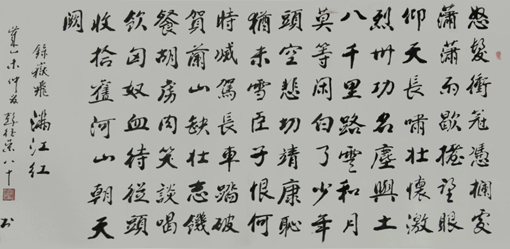 怒髮衝冠憑欄處
瀟瀟雨歇擡望眼
仰天長嘯壯懷激
烈卅功名塵與土
八千里路雲和月
莫等闲白了少年
頭空悲切靖康恥
猶未雪臣子恨何
時滅駕長車踏破
賀蘭山缺壯志饑
餐胡虜肉笑談喝
飲匈奴血待從頭
收拾舊河山朝天
闕
錄嶽飛滿江紅
八十